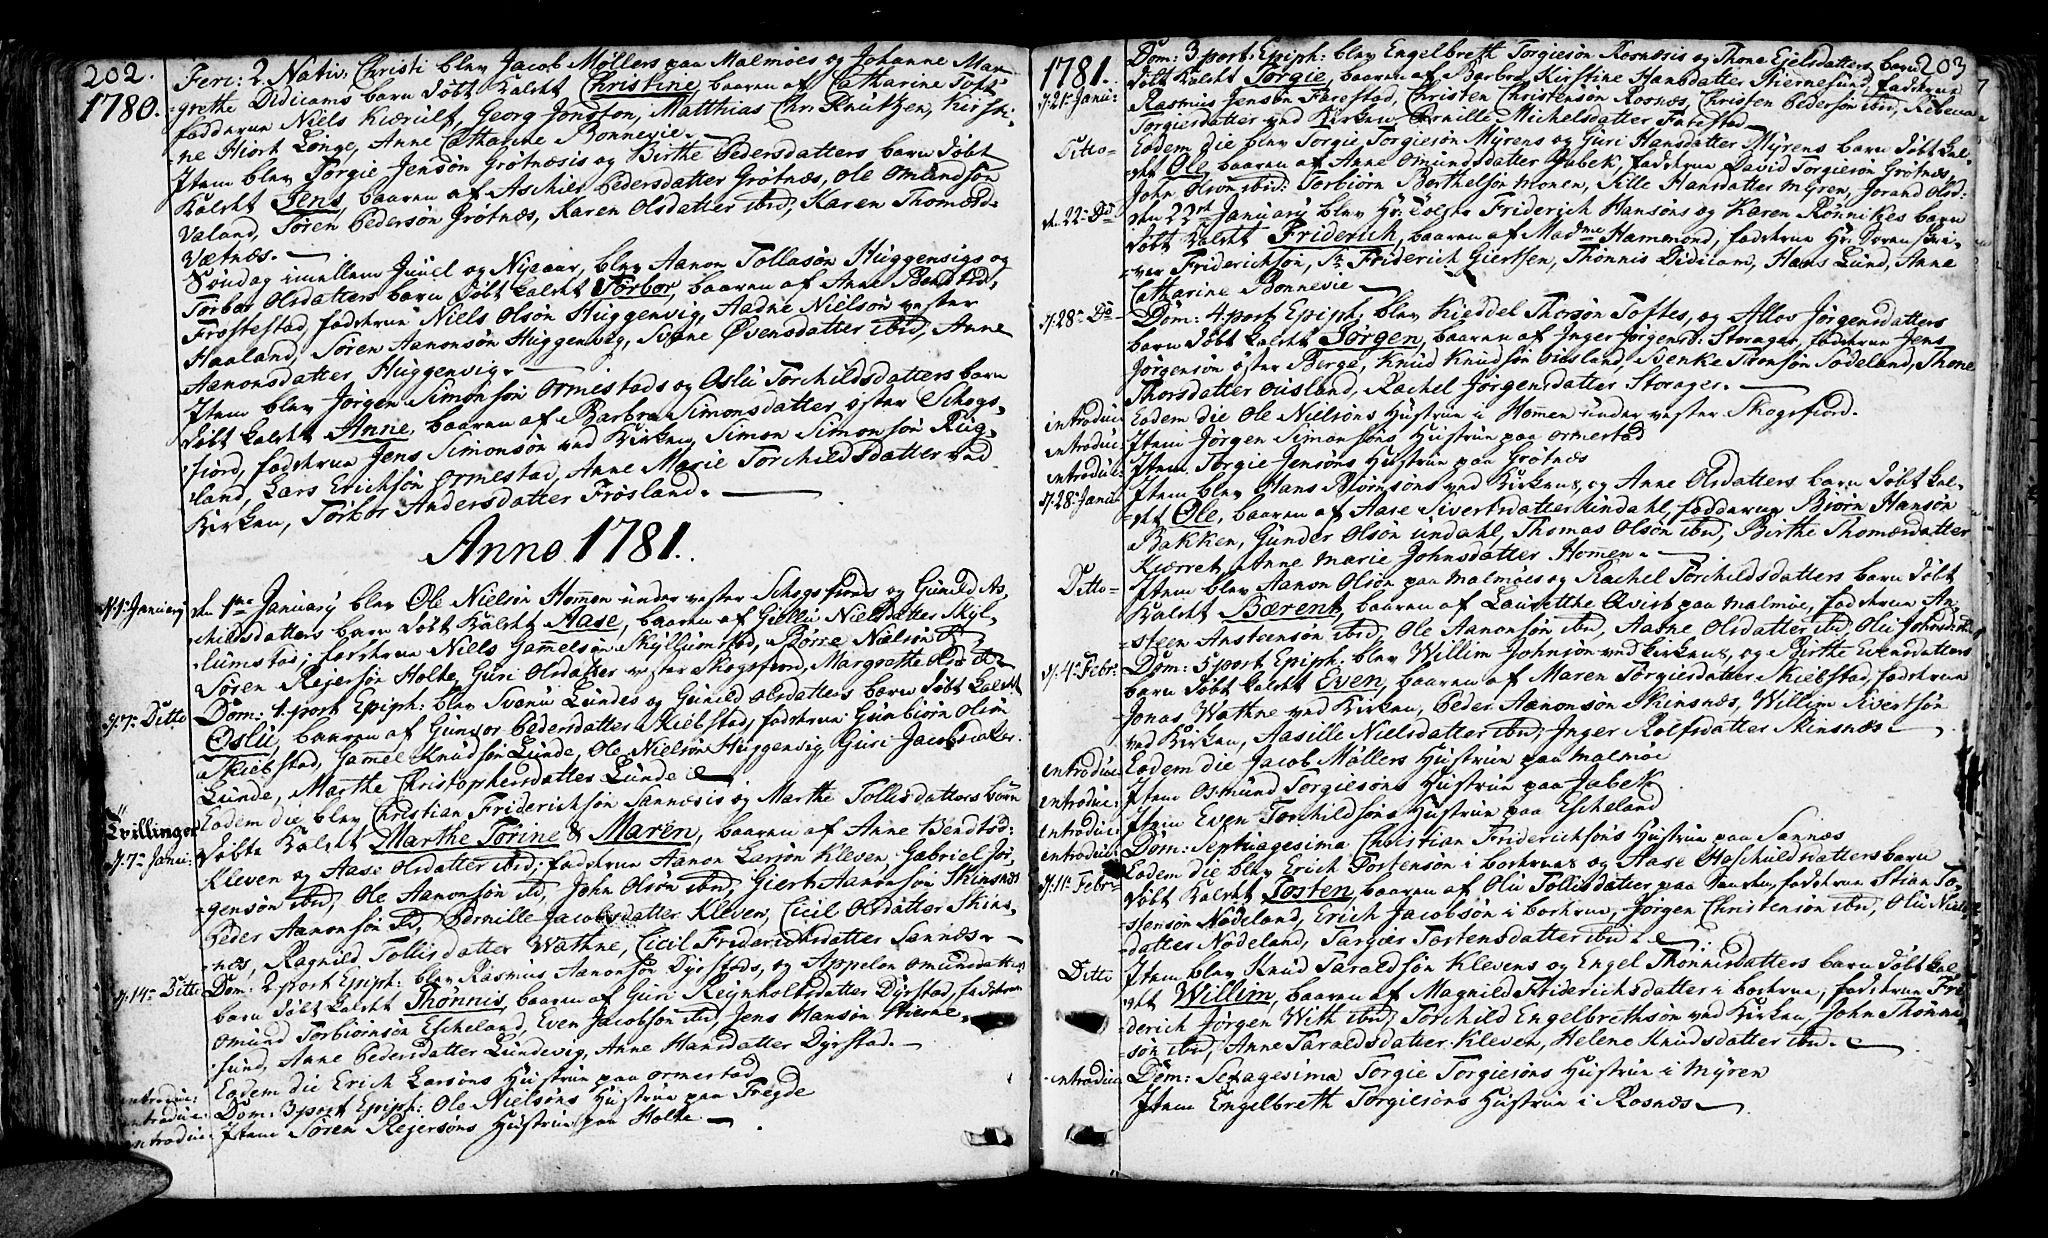 202.
1780.
Feri: 2. Nativ: Christi blev Jacob Møllers paa Malmöes og Johanne Mar
grethe Didicams barn döbt kaldet Christine, baaren af Catharine Toft
fadderne Niels Kierulf, Georg Jonston, Matthias Chr. Knutzen, Kirsti
ne Hiort Longe, Anne Catharine Bonnevie.
Item blev Torgie Jensön Grötnæsis og Birthe Pedersdatters barn döbt
kaldet Jens, baaren af Aschier Pedersdatter Grötnæs, Ole Omundsön
Valand, Tören Pedersön Grötnæs, Karen Olsdatter ibid, Karen Thomæd:
Vætnæs.
Söndag imellem Juuel og Nyeaar, blev Aanon Tollasön Huggenvigs og
Torbor Olsdatters barn döbt kaldet Torbor, baaren af Anne Bendtsd,
Frostestad, fadderne Niels Olson Huggenvig, Aadne Nielsön vester
Haaland, Sören Aanonsön Huggenvig, Svane Øvensdatter ibid, Anne
Aanonsdatter Huggenvig.
Item blev Jörgen Simonsön Ormestads og Oslu Torchildsdatters barn
döbt kaldet Anne, baaren af Barbra Simonsdatter öster Schogs
fiord, fadderne Jens Simonsön ved Kirken, Simon Simonsön Rug
land, Lars Erichsön Ormestad, Anne Marie Torchildsdatter ved
Kirken, Torbor Andersdatter Frösland.
Anno 1781.
d. 1. January
den 1ste January blev Ole Nielsön Homen under vester Schogsfiords og Gunild As
childsdatters barn döbt kaldet Aase, baaren af Gundlu Nielsdatter Skyl
lumstad; fadderne Niels Gammelsön Skyllumstad, Börre Nielsön
Sören Rejersön Holte, Guri Olsdatter vester Skogsfiord, Margrethe Olsd:
d. 7. Ditto
Dom: 1. post Epiph: blev Svanu Lundes og Gunild Olsdatters barn döbt kaldet
Oslu, baaren af Gunvor Pedersdatter Skiebstad, fadderne Gunbiörn Olsön
Skiebstad, Gamel Knudsön Lunde, Ole Nielsön Huggenvig, Guri Jacobsdatter
Lunde, Marthe Christophersdatter Lunde
Tvillinger
d. 7. Janu:
Eodem die blev Christian Friderichsön Sannæsis og Marthe Tollisdatters börn
döbte kaldet Marthe Torine & Maren, baaren af Anne Bendtsd:
Kleven og Aase Olsdatter ibid; fadderne Aanon Larsön Kleven, Gabriel Jör
gensön ibid, Ole Aanonsön ibid, John Olsön ibid, Giert Aanonsön Skinsnæs
Peder Aanonsön ibid, Pernille Jacobsdatter Kleven, Cicil Olsdatter Skins
næs, Ragnild Tollisdatter Wathne, Cicil Friderichsdatter Sannæs.
d. 14. Ditto
Dom: 2. post Epiph: blev Rasmus Aanonsön Dyrstads, og Appelon Omundsdatters
barn döbt kaldet Thönnis, baaren af Guri Reynholtsdatter Dyrstad, fadderne
Omund Torbiörnsön Escheland, Even Jacobsön ibid, Jens Hansön Stierne
sund, Anne Pedersdatter Lundevig, Anne Hansdatter Dyrstad.
introdue: Eodem die Erich Larsöns Hustrue paa Ormestad
introdue: Dom: 3. post Epiph: Ole Nielsöns Hustrue paa Fregde
introdue: Item Sören Rejersöns Hustrue paa Holte
203
1781.
d. 21. Janu:
Dom: 3 post Epiph: blev Engelbreth Torgiesön Rosnæsis og Thone Ejelsdatters barn
döbt kaldet Torgie, baaren af Barbra Kirstine Hansdatter Stiernesund, fadderne
Rasmus Jensön Farestad, Christen Christensön Rosnæs, Christen Pedersön ibid, Rebecca
Torgiersdatter ved Kirken, Pernille Michelsdatter Farestad
Ditto
Eodem die blev Torgie Torgiesön Myrens og Guri Hansdatter Myrens barn döbt kal
det Ole, baaren af Anne Omundsdatter Jabek, fadderne David Torgiesön Grötnæs,
John Olsön ibid: Torbiörn Berthelsön Monen, Sille Hansdatter Myren, Jorand Olsd:
d. 22. Do
den 22de January blev Hr. Friderich Hansöns og Karen Rönnikes barn
döbt kaldet Friderich, baaren af Madme Hammond, fadderne Hr. Soren skri
ver Friderichsön, Sr. Friderich Giertsen, Thönnis Didicam, Hans Lund, Anne
Catharine Bonnevie
d. 28. Do
Dom: 4. post Epiph: blev Kieddel Thorsön Toftes, og Allov Jörgensdatters
barn döbt kaldet Jörgen, baaren af Inger Jörgensd: Storager, fadderne Jens
Jörgensön öster Berge, Knud Knudsön Ousland, Svenke Tronsön Sodeland, Thone
Thorsdatter Ousland, Rachel Jörgensdatter Storager.
introdue: Eodem die Ole Nielsöns Hustrue i Homen under vester Skogsfiord.
introdue: Item Jörgen Simonsöns Hustrue paa Ormestad
introdue: Item Torgie Jensöns Hustrue paa Grötnæs
d. 28. Janu:
Item blev Hans Biörnsöns ved Kirkens, og Anne Olsdatters barn döbt kal
det Ole, baaren af Aase Sivertsdatter Undahl, fadderne Biörn Hansön
Bakken, Gunder Olsön Undahl, Thomas Olsön ibid, Birthe Thomæsdatter
Kierret, Anne Marie Johnsdatter Homen.
Ditto
Item blev Aanon Olsön paa Malmöes og Rachel Torchildsdatters barn döbt
kaldet Bærent, baaren af Laurettha Qvist paa Malmöe, fadderne An
steen Ansteensön ibid, Ole Aanonsön ibid, Aadne Olsdatter ibid, Oli
d. 4. Febr:
Dom: 5 post Epiph: blev Willim Johnsön ved Kirkens, og Birthe Evensdatters
barn döbt kaldet Even, baaren af Maren Torgiersdatter Skiebstad, fadderne
Jonas Wathne ved Kirken, Peder Aanonsön Skinsnæs, Willim Sivertsön
ved Kirken, Aasille Nielsdatter ibid, Inger Rolfsdatter Skinsnæs.
introdue: Eodem die Jacob Møllers Hustrue paa Malmöe
introdue: Item Osmund Torgiesöns Hustrue paa Jabek
introdue: Item Even Torchildsöns Hustrue paa Escheland
introdue: Dom: Septuagesima Christian Friderichsöns Hustrue paa Sannæs
d. 11. Febr:
Eodem die blev Erich Tostensön i borkens og Aase Haschuldsdatters barn
döbt kaldet Tosten, baaren af Oli Tollisdatter paa Sanden, fadderne Stian To
stensön Nödeland, Erich Jacobsön i borken, Jörgen Christensön ibid, Oli Niels
datter Nödeland, Targier Tostensdatter ibid.
Ditto
Item blev Knud Taraldsön Klevens og Engel Thönnisdatters barn döbt kal
det Willim, baaren af Magnild Friderichsdatter i borken, fadderne Fri
derich Jörgen With ibid, Torchild Engelbrethsön ved Kirken, John Thönni
sön ibid, Anne Taraldsdatter Kleven, Helene Knudsdatter ibid.
introdue: Dom: Sexagesima Torgie Torgiesöns Hustrue i Myren
Item Engelbreth Torgiesöns Hustrue i Rosnæs